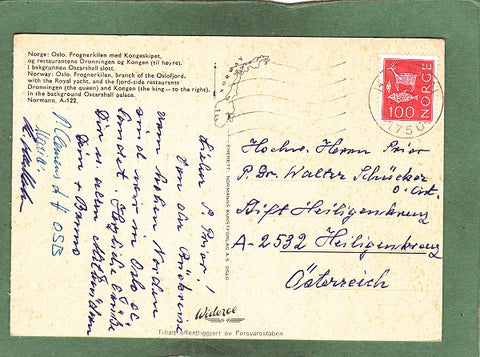 Norge: Oslo. Frognerkilen med Kongeskipet,
og restaurantene Dronningen og Kongen (til høyre).
I bakgrunnen Oscarshall slott.
Norway: Oslo. Frognerkilen, branch of the Oslofjord,
with the Royal yacht, and the fjord-side restaurants
Dronningen (the queen) and Kongen (the king — to the right).
In the background Oscarshall palace.
Normann, A-122.
NORGE
ENERETT: NORMANNS KUNSTFORLAG A/S OSLO
NORGE
100
1750
Hochw. Herrn Prior
P. Dr. Walter Schücker
O. Cist.
Stift Heiligenkreuz
A-2532 Heiligenkreuz
Österreich
Lieber P. Prior!
Von der
vom hohen Norden
sind wir in Oslo
gelandet. Herzliche Grüße
Dir u. allen Mitbrüdern
Dein + Benno
OSB
Widerøe
Tillatt offentliggjort av Forsvarsstaben